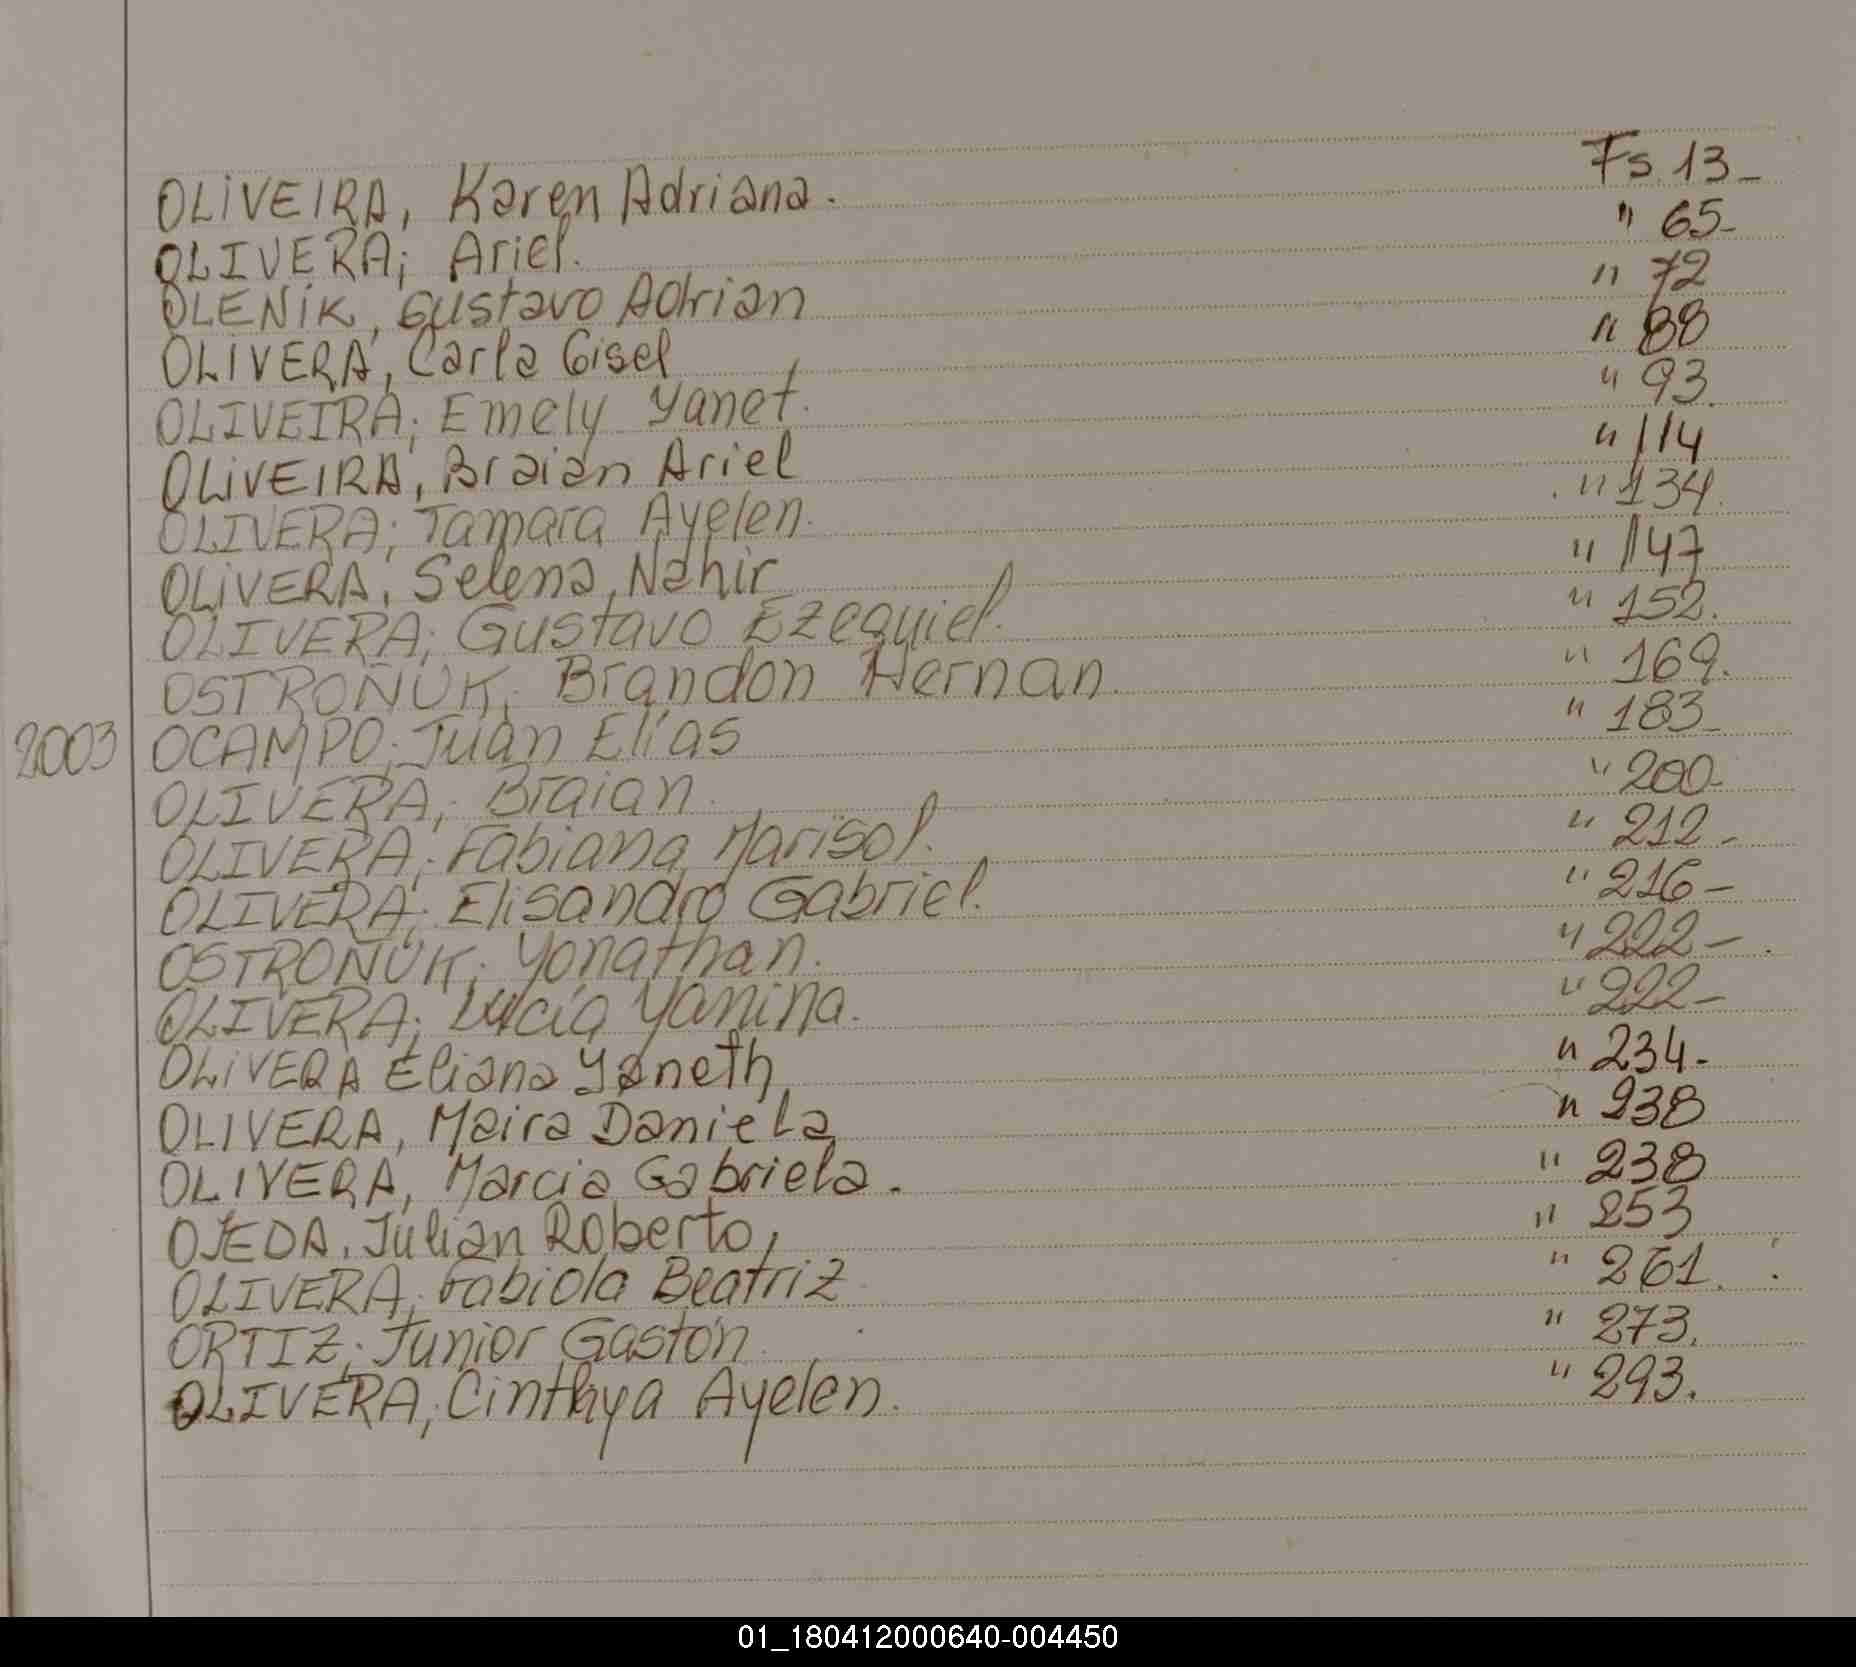 OLIVEIRA, Karen Adriana. Fs. 13-
OLIVERA; Ariel. " 65-
OLENIK, Gustavo Adrian " 72
OLIVERA, Carla Gisel " 88
OLIVEIRA; Emely Yanet. " 93.
OLIVEIRA, Braian Ariel " 114
OLIVERA; Tamara Ayelen. " 134.
OLIVERA, Selena Nahir " 147
OLIVERA; Gustavo Ezequiel. " 152.
OSTROÑUK; Brandon Hernan. " 169.
2003 OCAMPO; Juan Elías " 183-
OLIVERA; Braian. " 200-
OLIVERA; Fabiana Marisol. " 212-
OLIVERA; Elisandro Gabriel. " 216-
OSTROÑUK; Yonathan. " 222-
OLIVERA; Lucía Yanina. " 222-
OLIVERA Eliana Yaneth " 234-
OLIVERA, Maira Daniela " 238
OLIVERA, Marcia Gabriela. " 238
OJEDA, Julian Roberto, " 253
OLIVERA; Fabiola Beatriz " 261.
ORTIZ; Junior Gastón. " 273.
OLIVERA; Cinthya Ayelen. " 293.
01_180412000640-004450